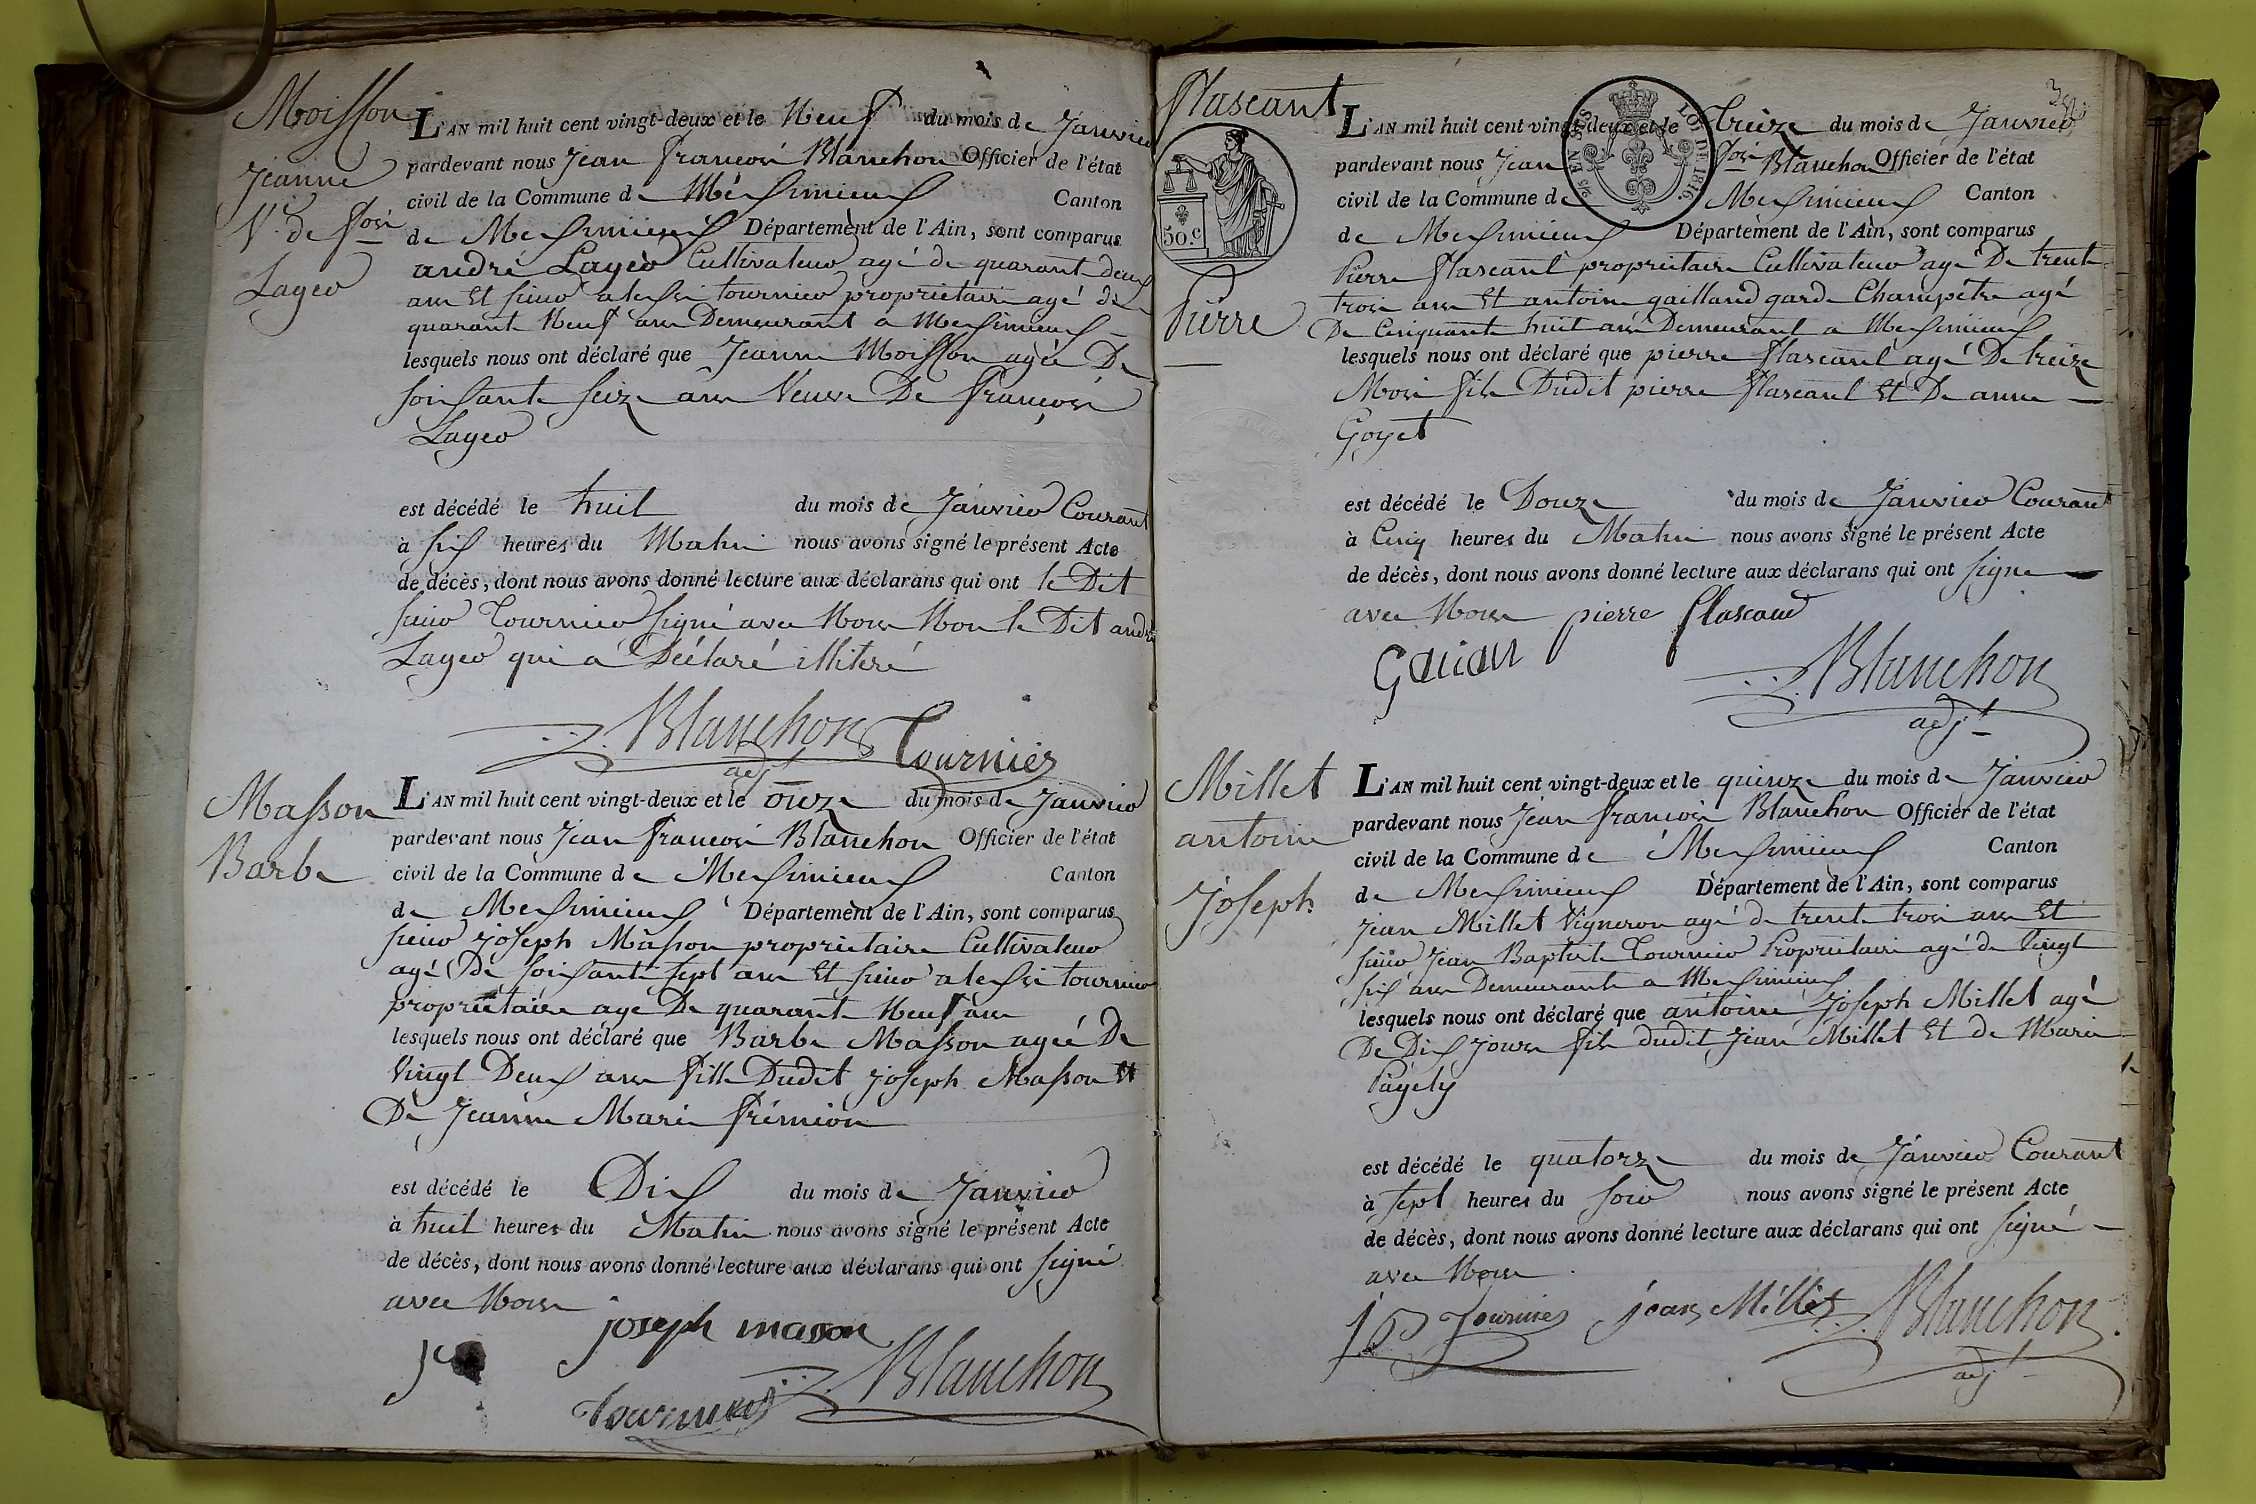 Moisson
Jeanne
Ve. de fois
Layer
L'AN mil huit cent vingt-deux et le Neuf du mois de Janvier
pardevant nous Jean françois Blanchon Officier de l'état
civil de la Commune de Meximieux Canton
de Meximieux Département de l'Ain, sont comparus
andré Layer Cultivateur agé de quarante deux
ans Et sieur alexis tournier propriétaire agé de
quarante Neuf ans Demeurant a Meximieux
lesquels nous ont déclaré que Jeanne Moisson agée De
soixante seize ans Veuve De François
Layer
est décédé le huit du mois de Janvier Courant
à six heures du Matin nous avons signé le présent Acte
de décès, dont nous avons donné lecture aux déclarans qui ont le Dit
sieur Tournier signé avec Nous Non le Dit andré
Layer qui a Déclaré illiteré
Blanchon
adjt
Tournier
Masson
Barbe
L'AN mil huit cent vingt-deux et le onze du mois de Janvier
pardevant nous Jean françois Blanchon Officier de l'état
civil de la Commune de Meximieux Canton
de Meximieux Département de l'Ain, sont comparus
sieur joseph Masson propriétaire Cultivateur
agé De soixante sept ans Et sieur alexis tournier
propriétaire agé De quarante Neuf ans
lesquels nous ont déclaré que Barbe Masson agée De
Vingt Deux ans fille Dudit joseph Masson Et
De Jeanne Marie frémion
est décédé le Dix du mois de Janvier
à huit heures du Matin nous avons signé le présent Acte
de décès, dont nous avons donné lecture aux déclarans qui ont signé
avec Nous
joseph mason
Tournier
Blanchon
flascant
50.c
Pierre
L'AN mil huit cent vingt-deux et le Treize du mois de Janvier
pardevant nous Jean fois Blanchon Officier de l'état
civil de la Commune de Meximieux Canton
de Meximieux Département de l'Ain, sont comparus
Pierre flascant propriétaire Cultivateur agé De trente
trois ans Et antoine gailland garde Champêtre agé
De Cinquante huit ans Demeurant a Meximieux
lesquels nous ont déclaré que pierre flascant agé De treize
Mois fils Dudit pierre flascant Et De anne
Goyet
est décédé le Douze du mois de Janvier Courant
à Cinq heures du Matin nous avons signé le présent Acte
de décès, dont nous avons donné lecture aux déclarans qui ont signé
avec Nous pierre flascand
Blanchon
adjt
LOI DE 1816.
Millet
antoine
joseph
L'AN mil huit cent vingt-deux et le quinze du mois de Janvier
pardevant nous Jean françois Blanchon Officier de l'état
civil de la Commune de Meximieux Canton
de Meximieux Département de l'Ain, sont comparus
jean Millet Vigneron agé de trente trois ans Et
sieur Jean Baptiste Tournier Propriétaire agé de Vingt
six ans Demeurants a Meximieux
lesquels nous ont déclaré que antoine joseph Millet agé
De Dix jours fils dudit Jean Millet Et de Marie
Pagely
est décédé le quatorze du mois de Janvier Courant
à sept heures du soir nous avons signé le présent Acte
de décès, dont nous avons donné lecture aux déclarans qui ont signé
avec Nous
jB Tournier jean Millet Blanchon
adjt